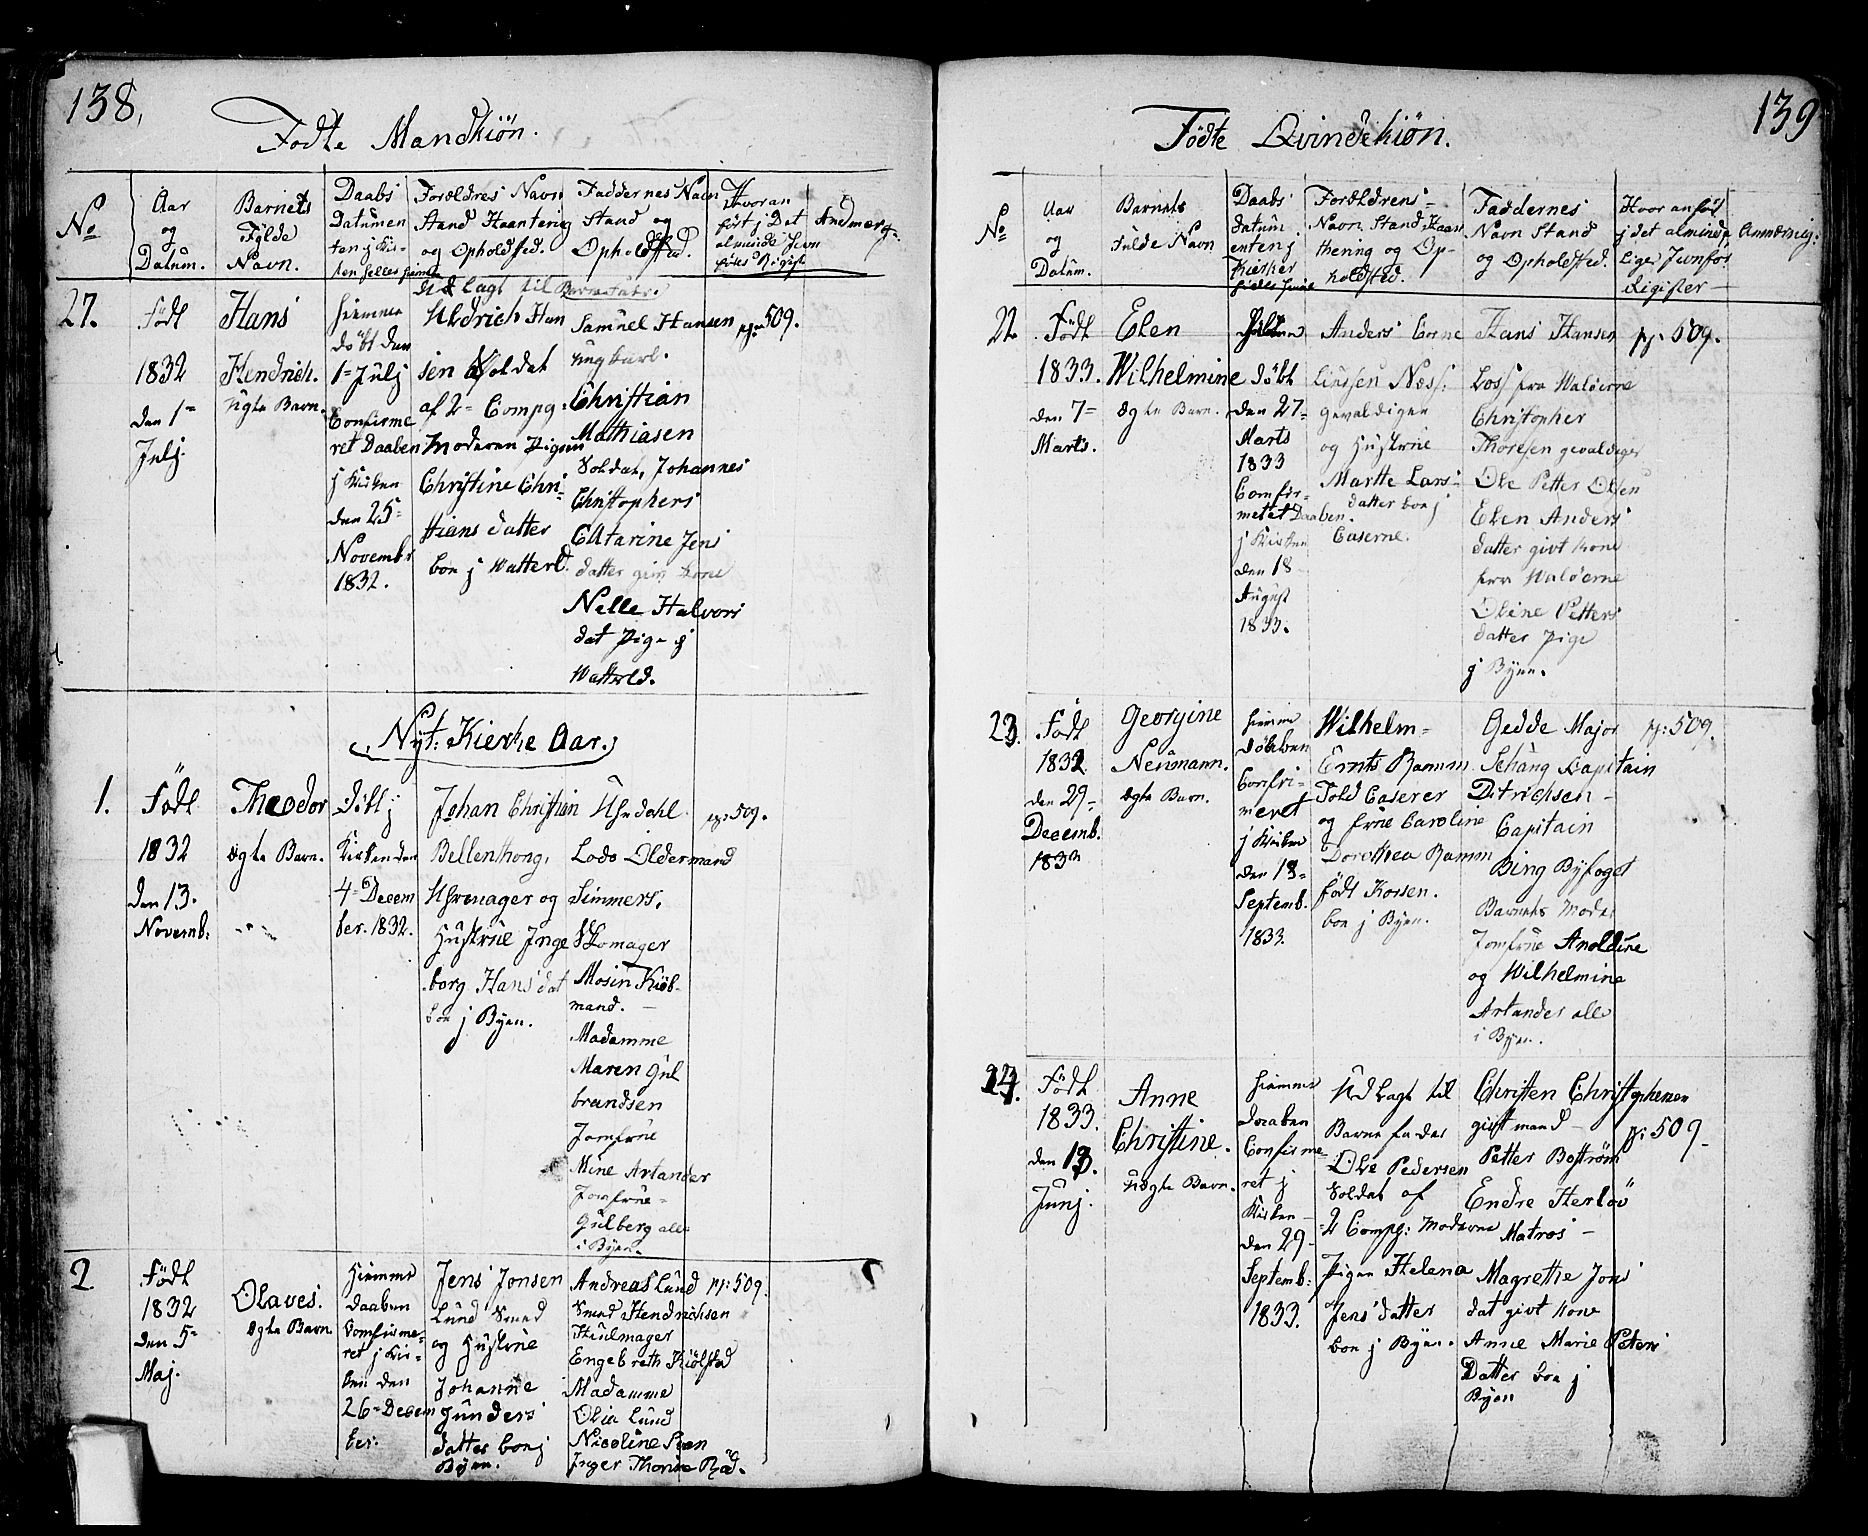 138,
Fødte Mandkiön.
No
Aar
og
Datum.
Barnets
Fylde
Navn.
Daabs
Datumen
ten j Kir-
ken heller hiemme
Forældres Navn
Stand Haantering
og Opholdsted.
Faddernes Navn
Stand og
Opholdsted.
Hvoran
ført j Det
almindel: Jevn
førels Rigist
Anmerg-
27.
Født
1832
den 1=
Julj.
Hans
Hendrich.
Uægte Barn.
Hiemme
döbt den
1= Julj
Confirme
ret Daaben
j Kirken
den 25=
Novembr
1832.
Udlagt til Barnefader.
Uldrich Han
sen Soldat
af 2= Compg:
Moderen Pigen
Christine Chri-
stians datter
boe j Watterld.
Samuel Hansen
ungkarl.
Christian
Mathiasen
Soldat, Johannes
Christophers
Catarine Jens
datter givt kone
Nelle Halvors
dat Pige j
Watterld.
pj: 509.
Nyt: Kierke Aar.
1.
Født
1832
den 13.
Novemb:
Theodor
ægte Barn.
Döbt j
Kirken den
4= Decem
ber. 1832.
Johan Christian
Bellenthong,
Uhrmager og
Hustrue Inge
borg Hans dat
boe j Byen.
Uhrdahl
Lods Oldermand
Simmers,
Skomager
Mosin Kiöb-
mand. -
Madamme
Maren Gul
brandsen
Jomfrue
Mine Arlander
Jomfrue-
Gulberg alle
i Byen.
pj: 509.
2
Født
1832
den 5=
Maj.
Olaves.
Ægte Barn
Hiemme
daaben
Comfirme-
ret j Kir-
ken den
26= Decem
ber.
Jens Jonsen
Lund Smed
og Hustrue
Johanne
Gunders
datter boe j
Byen.
Andreas Lund
Smed Hendrichsen
Hiulmager
Engebreth Kiölstad
Madamme
Olia Lund
Nicoline Steen
Inger Thorine Röd.
pj: 509.
139
Födte Qvindekiön.
No
Aar
og
Datum.
Barnets
Fulde Navn
Daabs
datum
enten j
Kierker
heller hieme
Forældrens-
Navn Stand Haan
thering og Op-
holdsted.
Faddernes
Navn Stand
og Opholdsted.
Hvor anført
j det alminde
liger Jevnfør
Rigister-
Anmærnig:
22
Født
1833.
den 7=
Marts.
Elen
Wilhelmine
Ægte Barn.
Hiemme
döbt
den 27-
Marts
1833
Comfir-
meret Daaben.
j Kirken
den 18
August
1833.
Anders Corne
liussen Næss:
gevaldiger
og Hustrue
Marthe Lars-
datter boe j
Caserne.
Hans Hansen
Loss fra Waløerne
Christopher
Thoresen gevaldiger
Ole Petter Olsen
Elen Anders
datter givt kone
fra Waløerne
Oline Petters
datter Pige
j Byen.
pj: 509.
23.
Født
1832
den 29-
Decemb.
1832
Georgine
Neumann.
ægte Barn.
Hiemme
döbben
Confri-
meret
j Kirken
den 18-
Septemb.
1833.
Wilhelm-
Ernts Ramm
Told Caserer
og frue Caroline
Dorothea Ramm
født Kossen.
boe j Byen.
Gedde Major
Schang Capitain
Ditrichsen-
Capitain
Bing Byfoget
Barnets Moder
Jomfrue Anoldine
og Wilhelmine
Arlander alle
i Byen.
pj: 509.
24.
Født
1833.
den 13.
Junj.
Anne
Christine.
Uægte Barn.
Hiemme
daaben
Confirme-
ret j
Kirken-
den 29-
Septemb:
1833.
Udlagt til
Barnefader
Ole Pedersen
Soldat af
2 Compg: Moderne
Pigen Helena
Jens datter
boe j Byen.
Christen Christophersen
givt mand-
Petter Boström
Endre Herlöv
Matros-
Magrethe Jons
dat givt kone
Anne Marie Peters
Datter boe j
Byen
pj: 509-